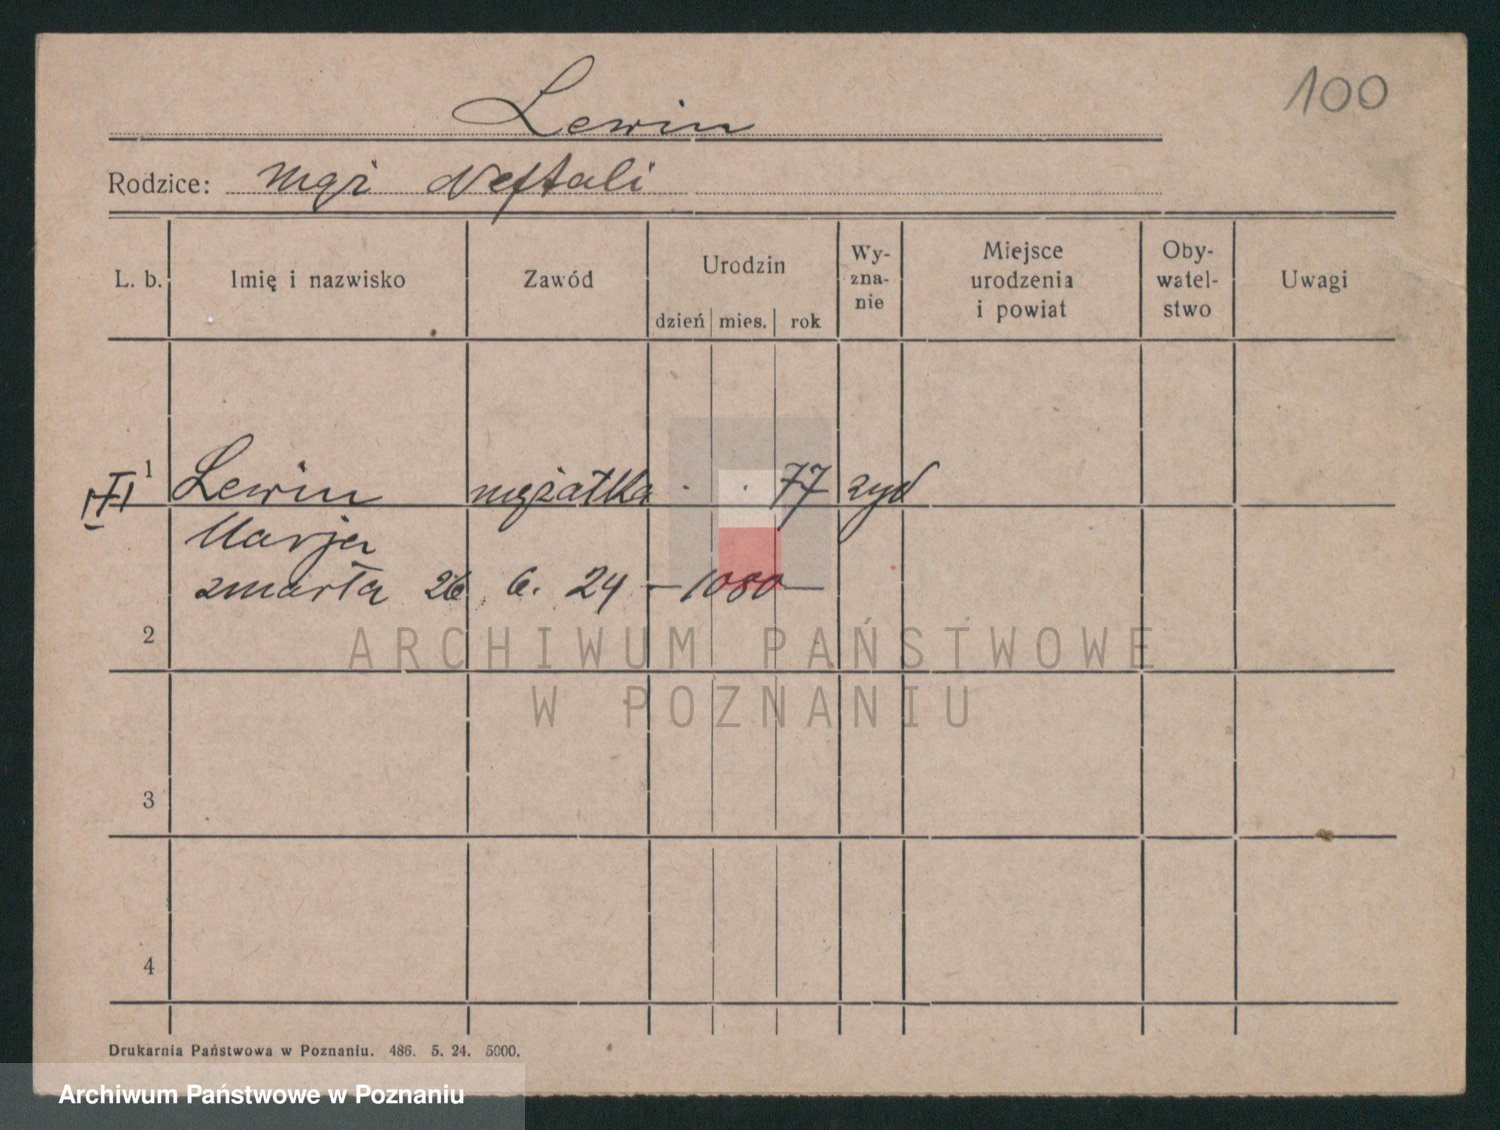 100
Lewin
Rodzice: mąż Neftali
L. b. Imię i nazwisko Zawód Urodzin dzień mies. rok Wy-zna-nie Miejsce urodzenia i powiat Oby-watel-stwo Uwagi
1 Lewin mężatka . . 77 żyd
Marja
zmarła 26. 6. 24 – 1080 –
2
ARCHIWUM PAŃSTWOWE
W POZNANIU
3
4
Drukarnia Państwowa w Poznaniu. 486. 5. 24. 5000.
Archiwum Państwowe w Poznaniu